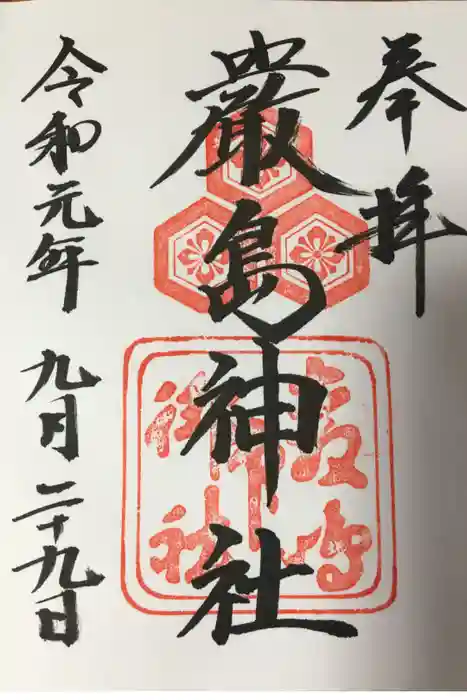 奉拝
厳島神社
令和元年 九月二十九日